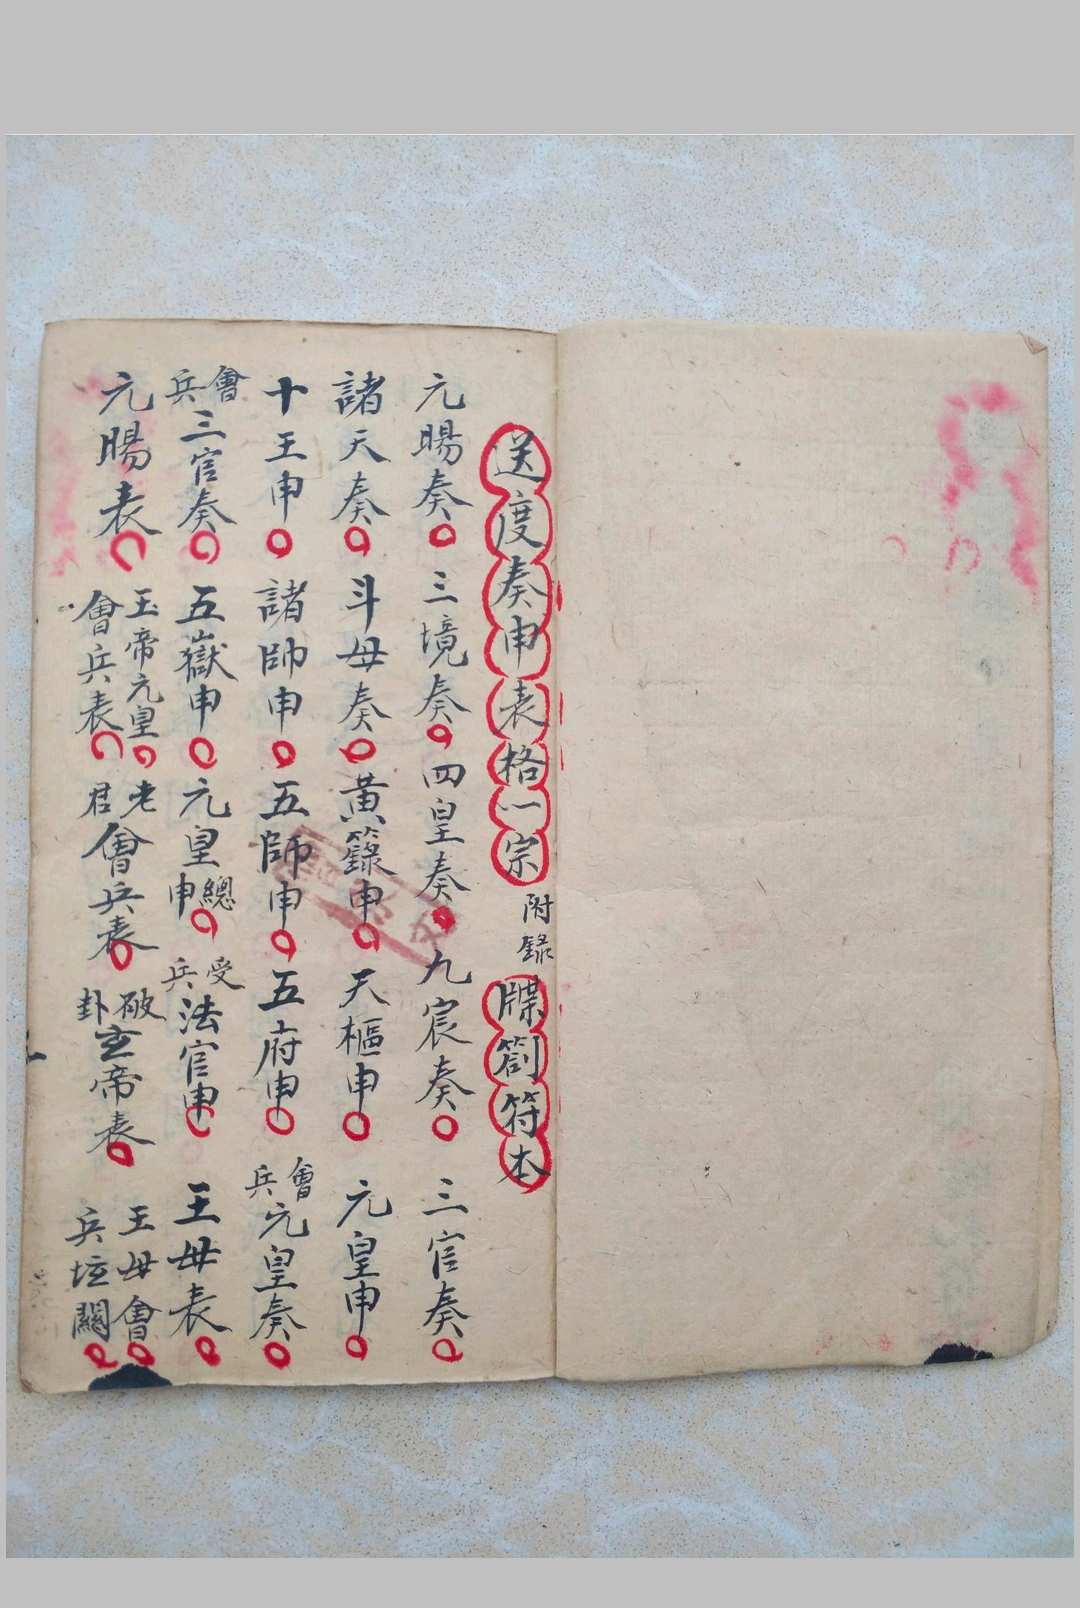 送度奏申表格一宗附錄牒劄符本
元暘奏三境奏四皇奏九宸奏三官奏
諸天奏斗母奏黃籙申天樞申元皇申
十王申諸帥申五師申五府申會兵元皇奏
會兵三官奏五嶽申元皇總申受兵法官申王母表
元暘表玉帝元皇會兵表老君會兵表破卦玄帝表王母會兵坛關